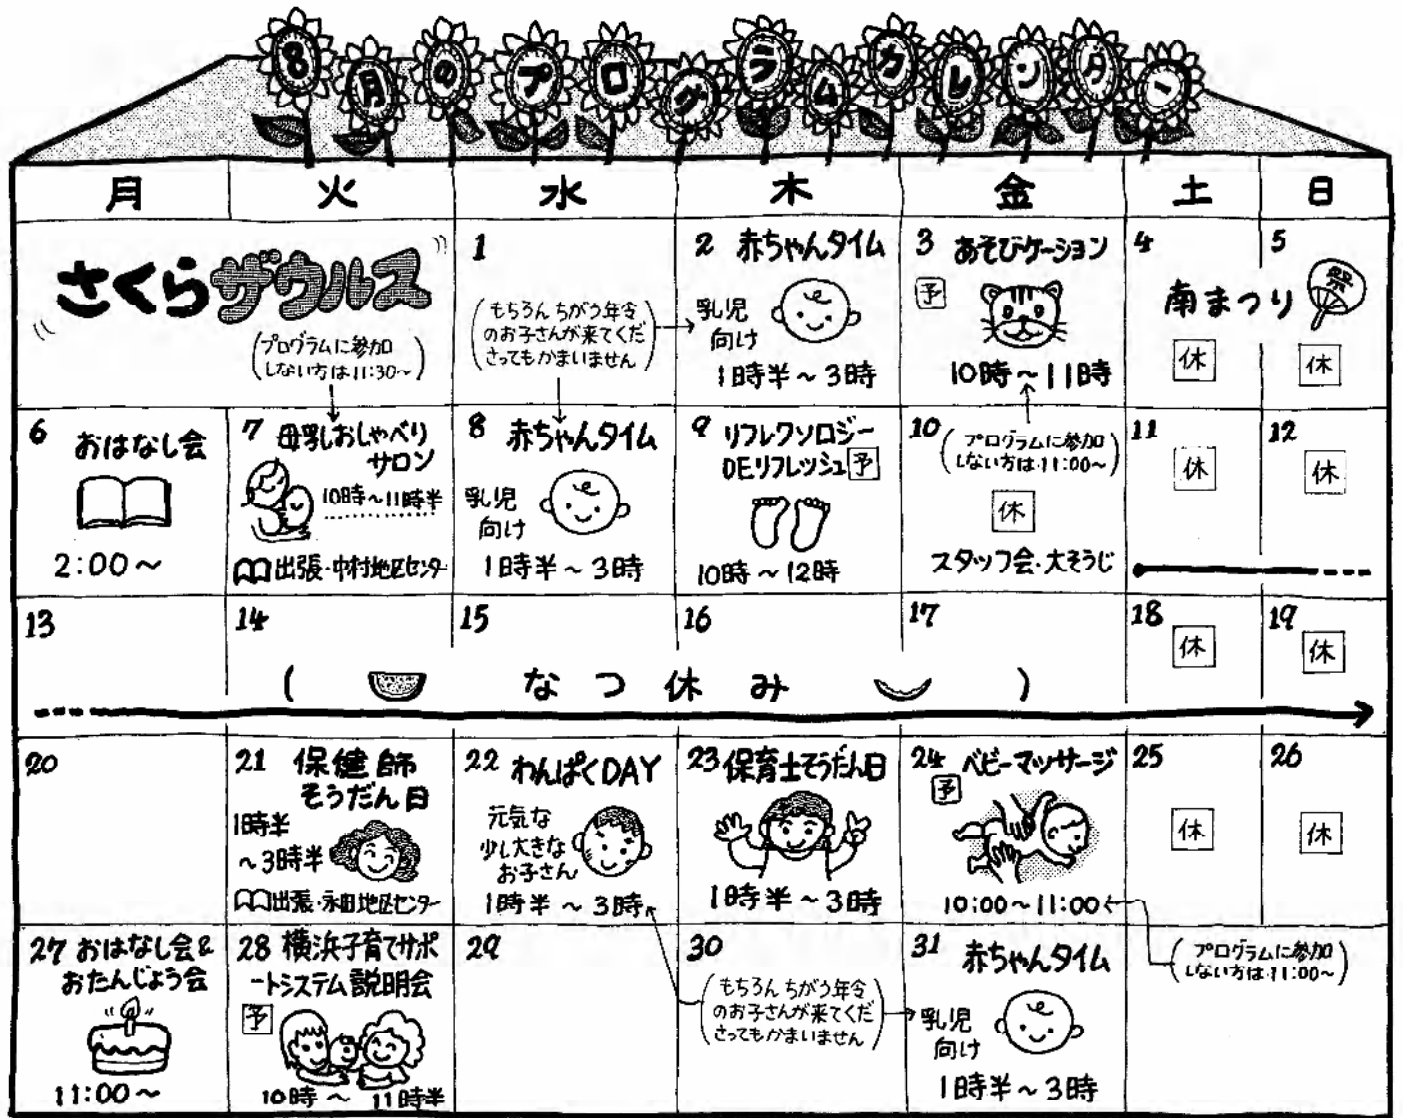 8月のプログラムカレンダー
月 火 水 木 金 土 日
さくらザウルス
(プログラムに参加
しない方は11:30～)
1
(もちろん ちがう年令
のお子さんが来てくだ
さってもかまいません)
2 赤ちゃんタイム
乳児
向け
1時半～3時
3 あそびケーション
予
10時～11時
4 5
南まつり
祭
休 休
6 おはなし会
2:00～
7 母乳おしゃべり
サロン
10時～11時半
出張・中村地区センター
8 赤ちゃんタイム
乳児
向け
1時半～3時
9 リフレクソロジー
DEリフレッシュ 予
10時～12時
10 (プログラムに参加
しない方は11:00～)
休
スタッフ会・大そうじ
11
休
12
休
13 14 15 16 17
( なつ休み )
18
休
19
休
20
21 保健師
そうだん日
1時半
～3時半
出張・永田地区センター
22 わんぱくDAY
元気な
少し大きな
お子さん
1時半～3時
23 保育士そうだん日
1時半～3時
24 ベビーマッサージ
予
10:00～11:00
25
休
26
休
27 おはなし会&
おたんじょう会
11:00～
28 横浜子育てサポ
ートシステム説明会
予
10時～11時半
29
30
(もちろん ちがう年令
のお子さんが来てくだ
さってもかまいません)
31 赤ちゃんタイム
乳児
向け
1時半～3時
(プログラムに参加
しない方は11:00～)